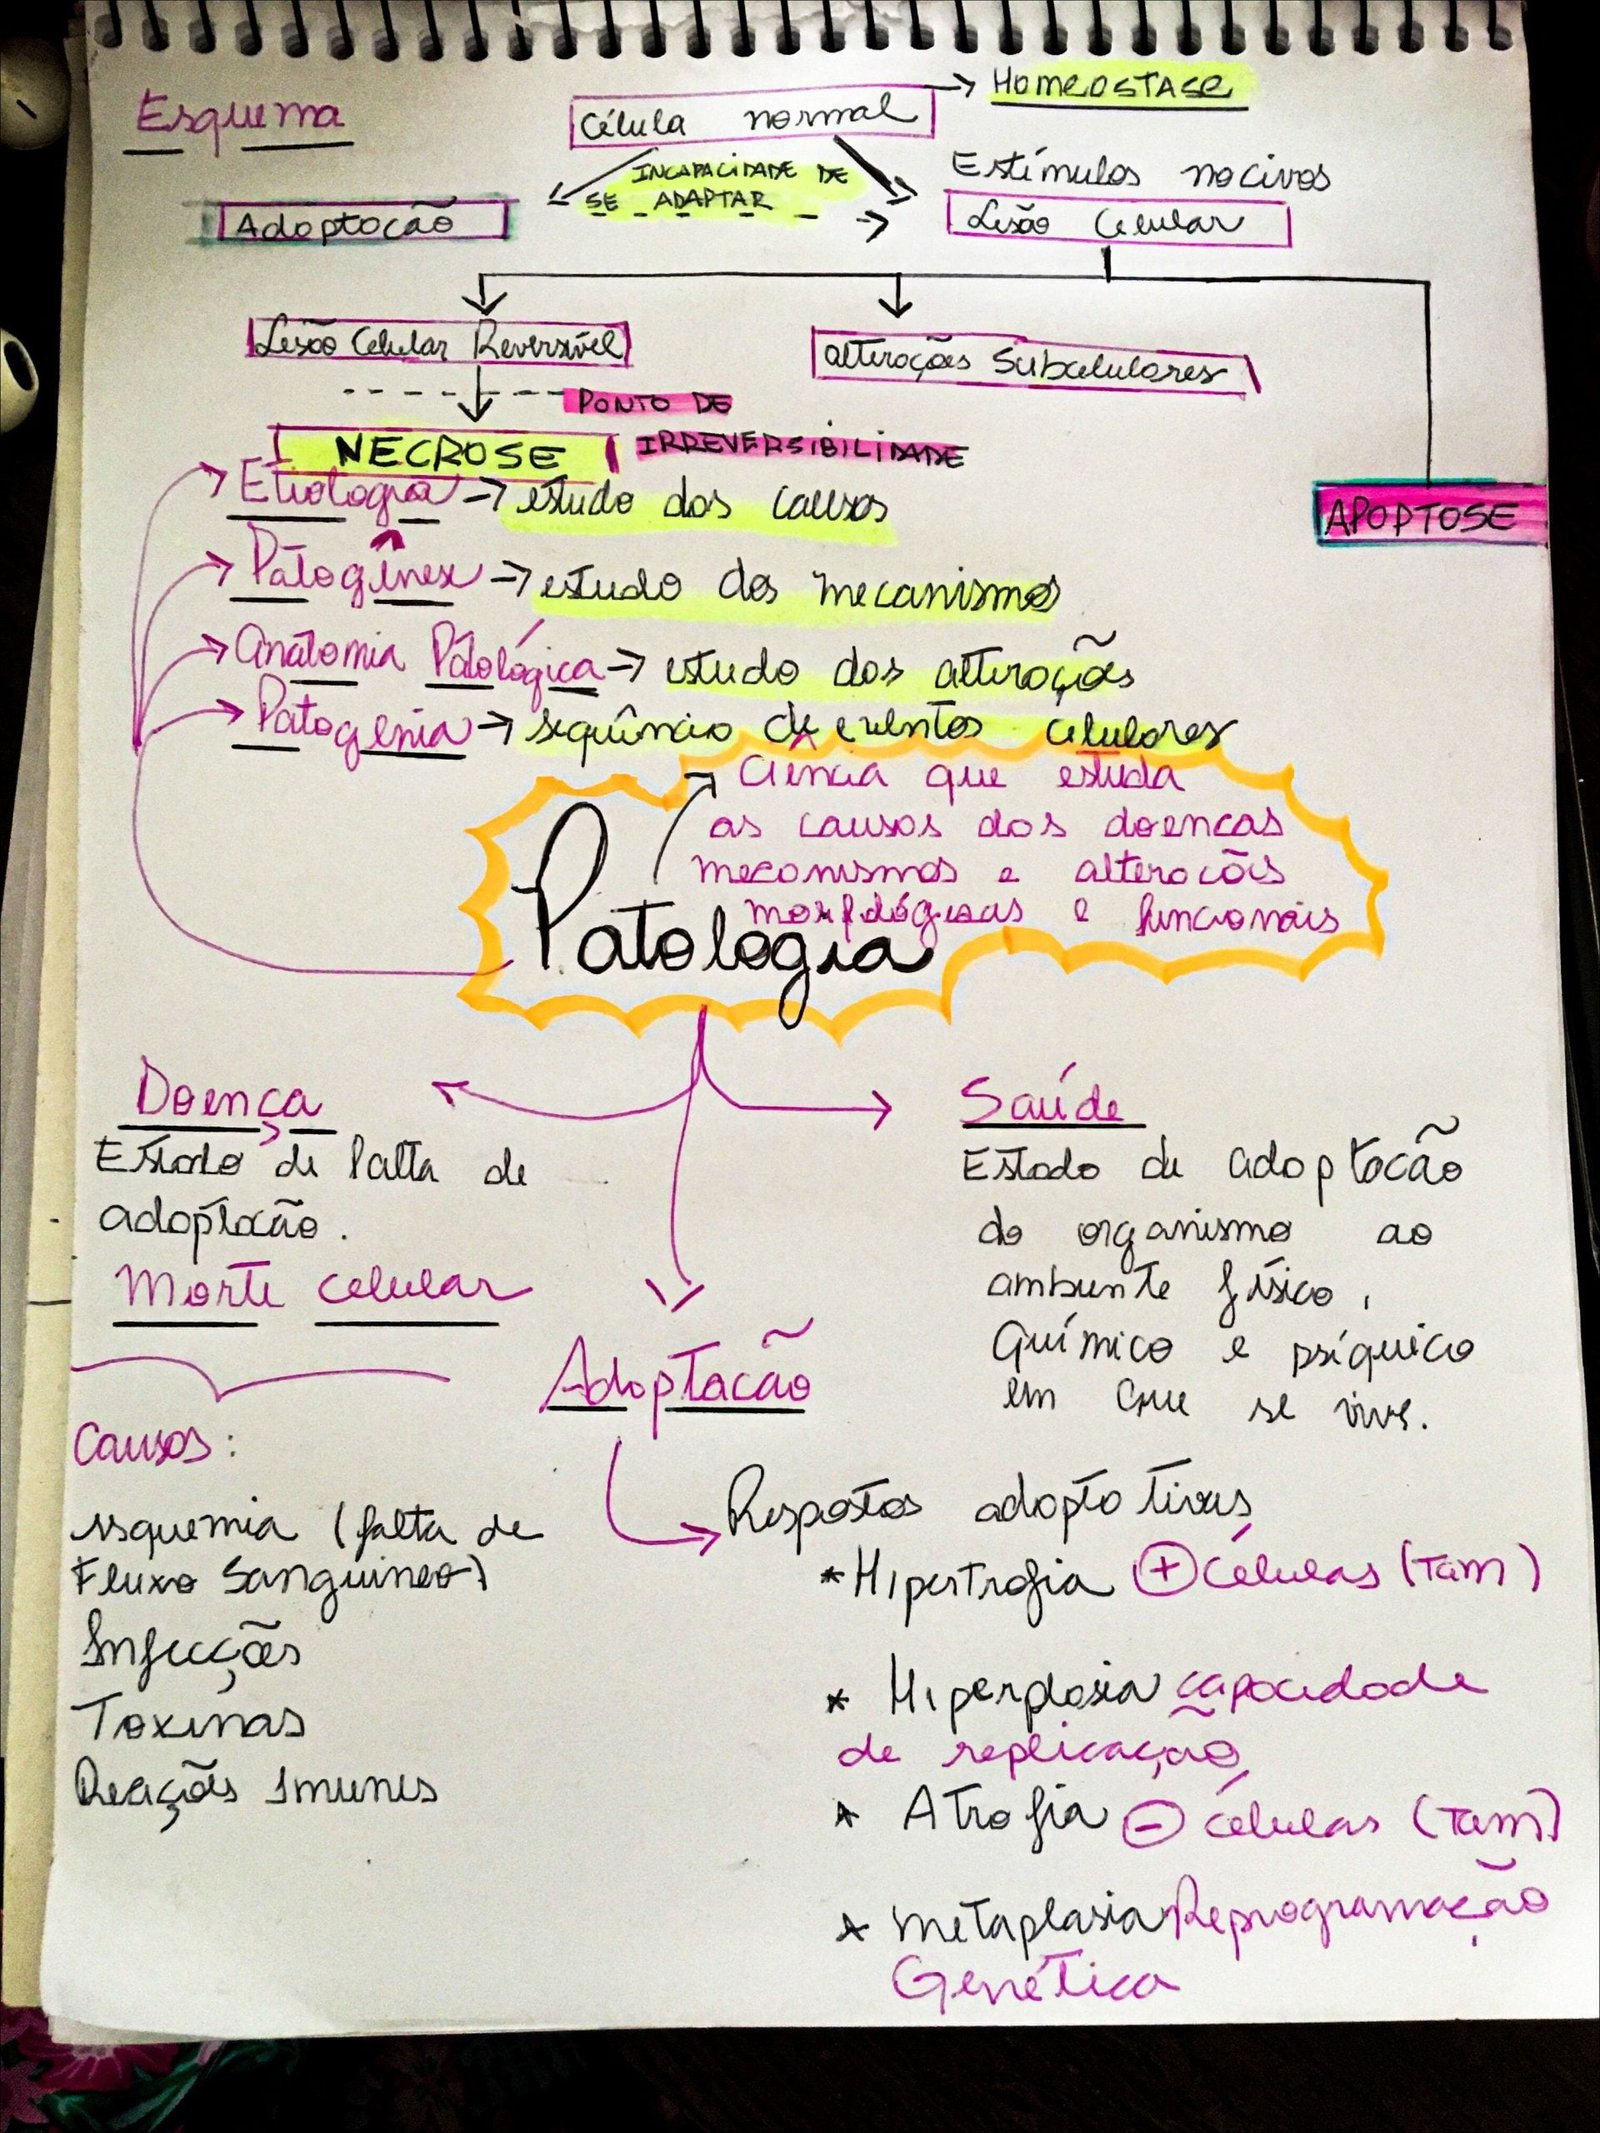 Esquema
Célula normal → HOMEOSTASE
INCAPACIDADE DE
SE ADAPTAR
Estímulos nocivos
Adaptação
Lesão Celular
Lesão Celular Reversível
alterações Subcelulares
PONTO DE
IRREVERSIBILIDADE
NECROSE
APOPTOSE
Etiologia → estudo das causas
Patogênese → estudo dos mecanismos
Anatomia Patológica → estudo das alterações
Patogenia → sequência de eventos celulares
Ciência que estuda
as causas das doenças
mecanismos e alterações
morfológicas e funcionais
Patologia
Doença
Estado de falta de
adaptação.
Morte celular
Causas:
isquemia (falta de
Fluxo Sanguineo)
Infecções
Toxinas
Reações Imunes
Saúde
Estado de adaptação
do organismo ao
ambiente físico,
Químico e psíquico
em que se vive.
Adaptação
Respostas adaptativas
* Hipertrofia + células (Tam)
* Hiperplasia capacidade
de replicação
* Atrofia - células (Tam)
* metaplasia Reprogramação
Genética